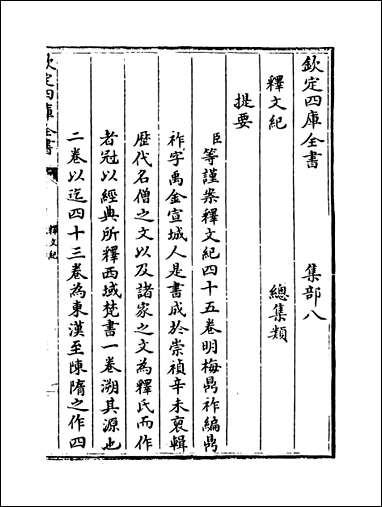 欽定四庫全書 集部八
釋文紀 總集類
提要
臣等謹案釋文紀四十五卷明梅鼎祚編鼎
祚字禹金宣城人是書成於崇禎辛未裒輯
歷代名僧之文以及諸家之文為釋氏而作
者冠以經典所釋西域梵書一卷溯其源也
二卷以迄四十三卷為東漢至陳隋之作四
欽定四庫全書
釋文紀